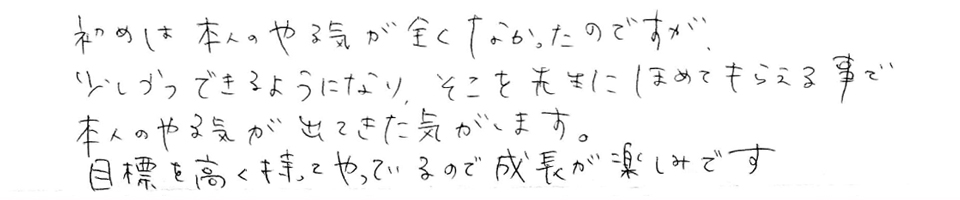 初めは本人のやる気が全くなかったのですが、
少しづつできるようになり、そこを先生にほめてもらえる事で
本人のやる気が出てきた気がします。
目標を高く持ってやっているので成長が楽しみです